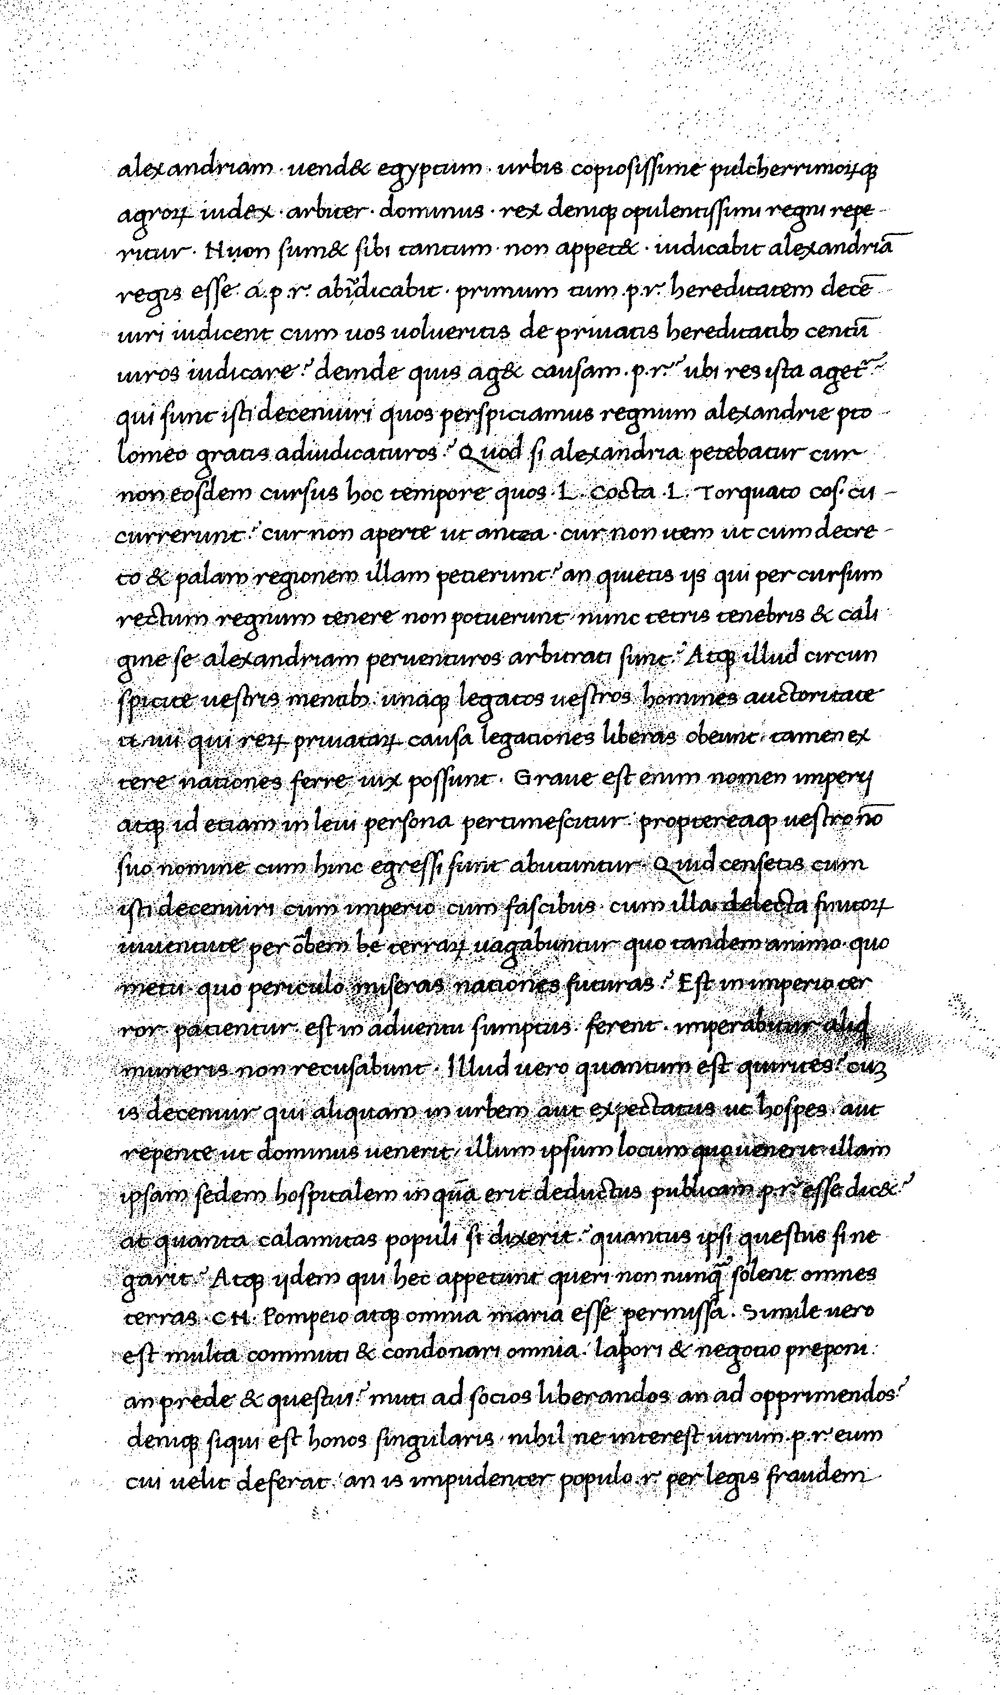 alexandriam · uend& egyptum · urbis copiosissime pulcherrimoꝝqꝫ
agroꝝ iudex · arbiter · dominus · rex deniqꝫ opulentissimi regni repe
ritur · Nuon sum& sibi tantum · non appet& · iudicabit alexandriā
regis esse · a.p.r. abiudicabit · primum cum .p.r. hereditatem decē
uiri iudicent cum uos uolueritis de priuatis hereditatibꝫ centū
uiros iudicare? deinde quis ag& causam .p.r.? ubi res ista aget?
qui sunt isti decemuiri quos perspiciamus regnum alexandrie pto
lomeo gratis adiudicaturos? Quod si alexandria petebatur cur
non eosdem cursus hoc tempore quos .L. Cocta .L. Torquato cos. cu
currerunt? cur non aperte ut antea · cur non item ut cum decre
to & palam regionem illam petierunt? an quietis ijs qui per cursum
rectum regnum tenere non potuerunt · nunc tetris tenebris & cali
gine se alexandriam peruenturos arbitrati sunt? Atqꝫ illud circun
spicite uestris mentibꝫ unaqꝫ legatos uestros homines auctoritate
tenui qui reꝝ priuataꝝ causa legationes liberas obeunt · tamen ex
tere nationes ferre uix possunt · Graue est enim nomen imperij
atqꝫ id etiam in leui persona pertimescitur · proptereaqꝫ uestro nō
suo nomine cum hinc egressi sunt abutuntur · Quid censetis cum
isti decemuiri cum imperio cum fascibus · cum illa delecta finitoꝝ
iuuentute per ōbem be terraꝝ uagabuntur quo tandem animo · quo
metu · quo periculo miseras nationes futuras? Est in imperio ter
ror patientur · est in aduentu sumptus · ferent · imperabitur aliqd
muneris non recusabunt · Illud uero quantum est quirites? cuꝫ
is decemuir qui aliquam in urbem aut expectatus ut hospes · aut
repente ut dominus uenerit · illum ipsum locum quo uenerit · illam
ipsam sedem hospitalem in quā erit deductus publicam .p.r. esse dic&?
at quanta calamitas populi si dixerit? quantus ipsi questus si ne
garit? Atqꝫ ijdem qui hec appetunt queri non nunqꝫ solent omnes
terras · CN. Pompeio atqꝫ omnia maria esse permissa. Simile uero
est multa committi & condonari omnia · labori & negotio preponi
an prede & questui? mitti ad socios liberandos an ad opprimendos?
deniqꝫ siqui est honos singularis · nihil ne interest utrum .p.r. eum
cui uelit deferat · an is impudenter populo .r. per legis fraudem